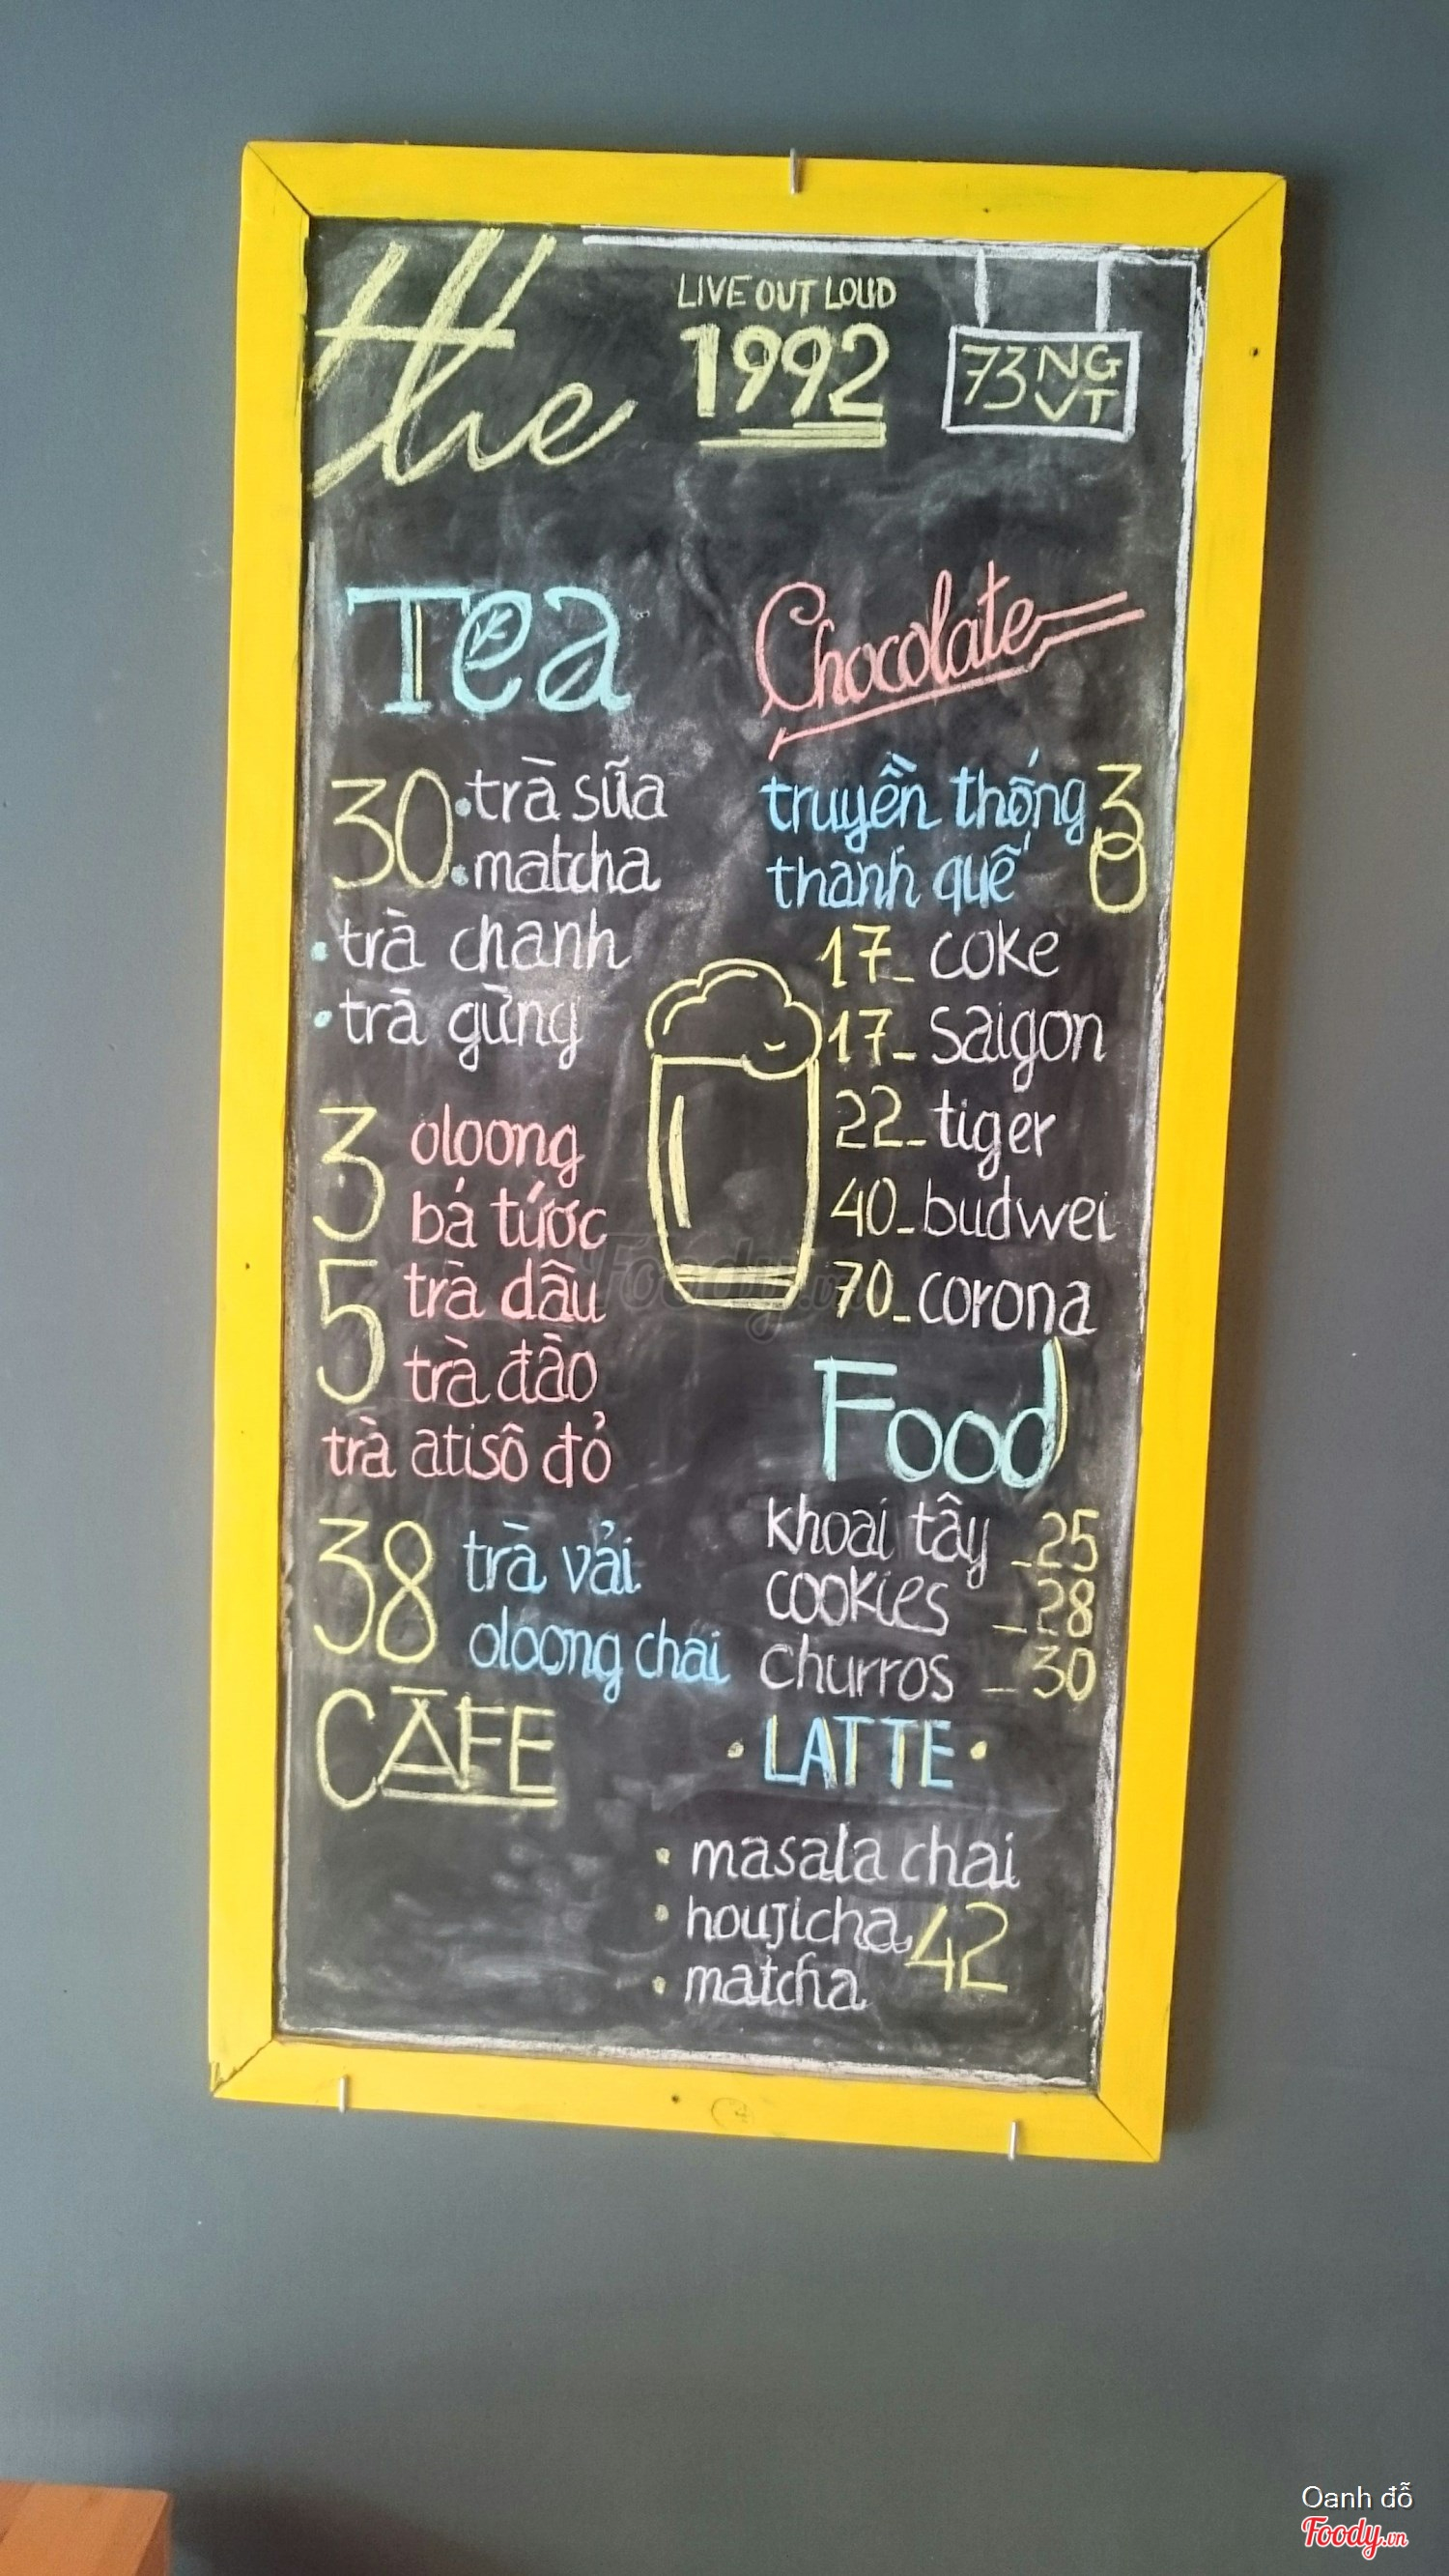 the
LIVE OUT LOUD
1992
73 NG
VT
Tea
30 • trà sữa
• matcha
• trà chanh
• trà gừng
35 oloong
bá tước
trà dâu
trà đào
trà atisô đỏ
38 trà vải
oloong chai
CAFE
Chocolate
truyền thống 30
thanh quế
17_ coke
17_ saigon
22_ tiger
40_ budwei
70_ corona
Food
khoai tây _25
cookies _28
churros _30
• LATTE •
• masala chai
• houjicha 42
• matcha
Foody.vn
Oanh đỗ
Foody.vn